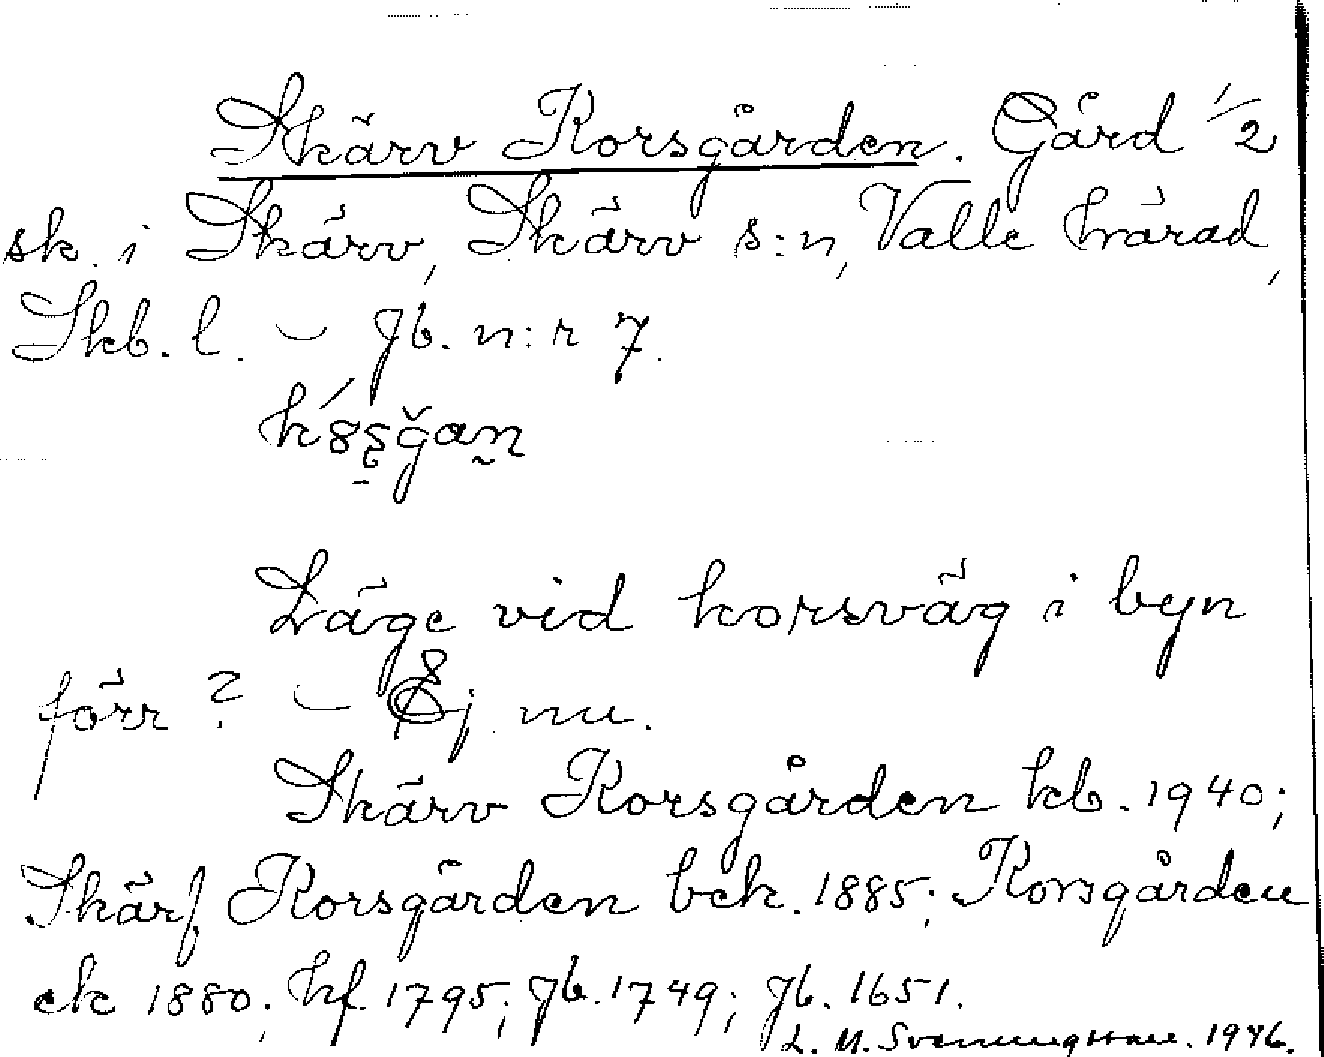 Skärv Korsgården. Gård 1/2
sk. i Skärv, Skärv s:n, Valle härad,
Skb. l. – Jb. n:r 7.
Läge vid korsväg i byn
förr? – Ej nu.
Skärv Korsgården kb. 1940;
Skärf Korsgården bek. 1885; Korsgården
ek 1880; hf. 1795; Jb. 1749; Jb. 1651.
1946.